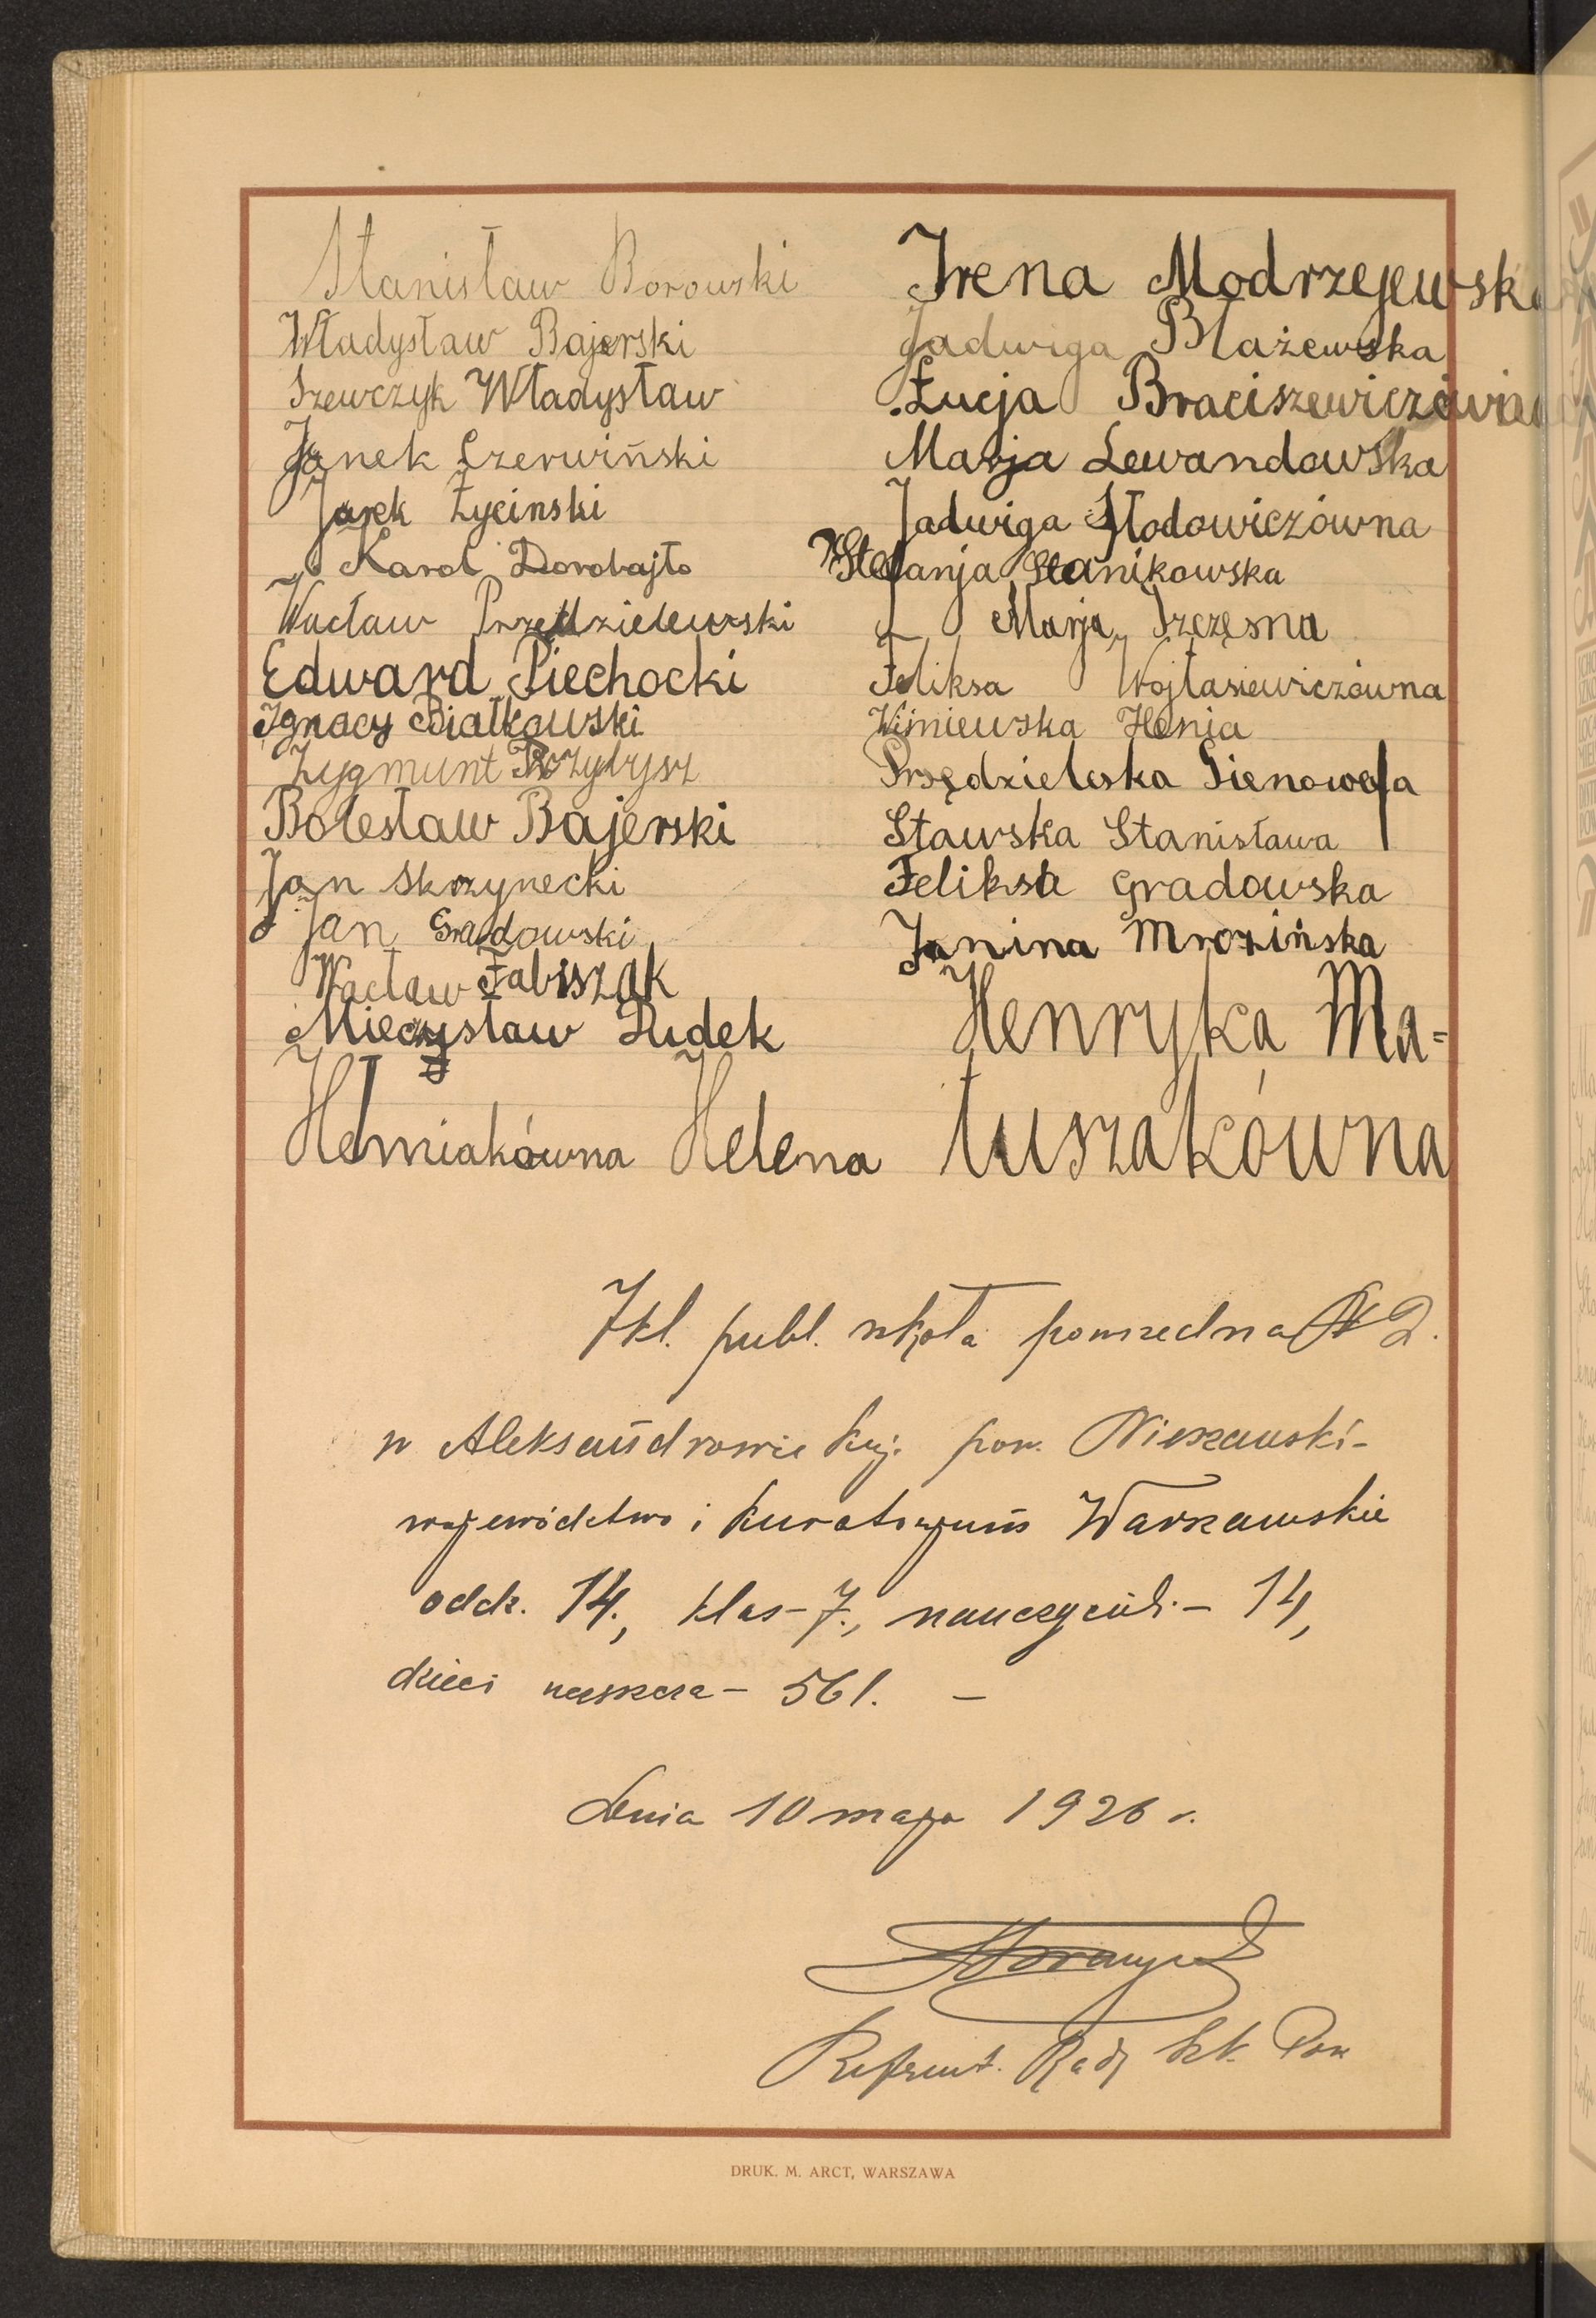 Stanisław Borowski
Władysław Bajerski
Szewczyk Władysław
Janek Czerwiński
Jarek Życinski
Karol Dorobajło
Wacław Przedzielewski
Edward Piechocki
Ignacy Białkowski
Zygmunt
Bolesław Bajerski
Jan Skrzynecki
Jan Gradowski
Wacław Fabiszak
Mieczysław Dudek
Helmiakówna Helena
Irena Modrzejewska
Jadwiga Błażewska
Łucja Braciszewiczówna
Marja Lewandowska
Jadwiga Słodowiczówna
Stefanja Stanikowska
Marja Szczęsna
Feliksa Wojtasiewiczówna
Wiśniewska Henia
Przędzielska Gienowefa
Stawska Stanisława
Feliksa Gradowska
Janina Mrozińska
Henryka Ma-
tuszakówna
7 kl. publ. szkoła powszedna N 2.
w Aleksandrowie Kuj. pow. Nieszawski-
województwo i Kuratorjum Warszawskie
oddz. 14., klas - 7., nauczyciel. - 14,
dzieci uczęszcza - 561. -
Dnia 10 maja 1926 r.
Referent. Rady Szk. Pow
DRUK. M. ARCT, WARSZAWA